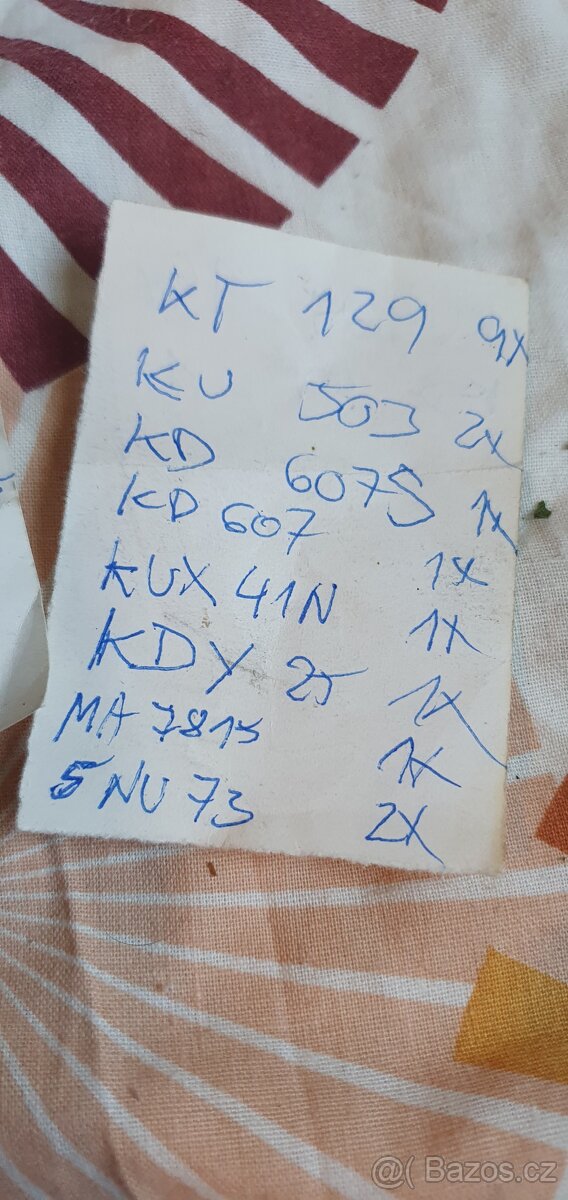 KT 129 9x
KU 503 2x
KD 607S 1x
KD 607 1x
KUX 41N 1x
KDY 25 1x
MA 7815 1x
5NU 73 2x
@( Bazos.cz